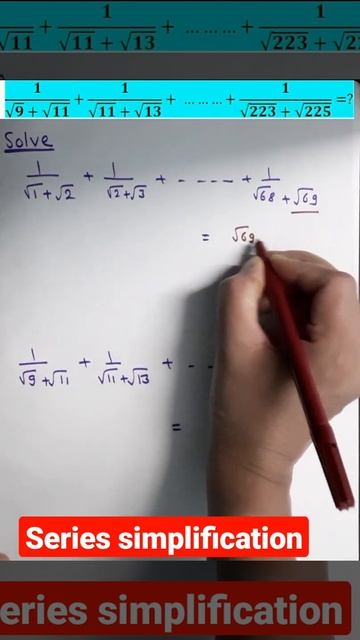 √11 + 1/(√11 + √13) + ... ... ... + 1/(√223 + √22
1/(√9 + √11) + 1/(√11 + √13) + ... ... ... + 1/(√223 + √225) =?
Solve
1/(√1 + √2) + 1/(√2 + √3) + - - - - + 1/(√68 + √69)
= √69
1/(√9 + √11) + 1/(√11 + √13) + - -
=
Series simplification
eries simplification